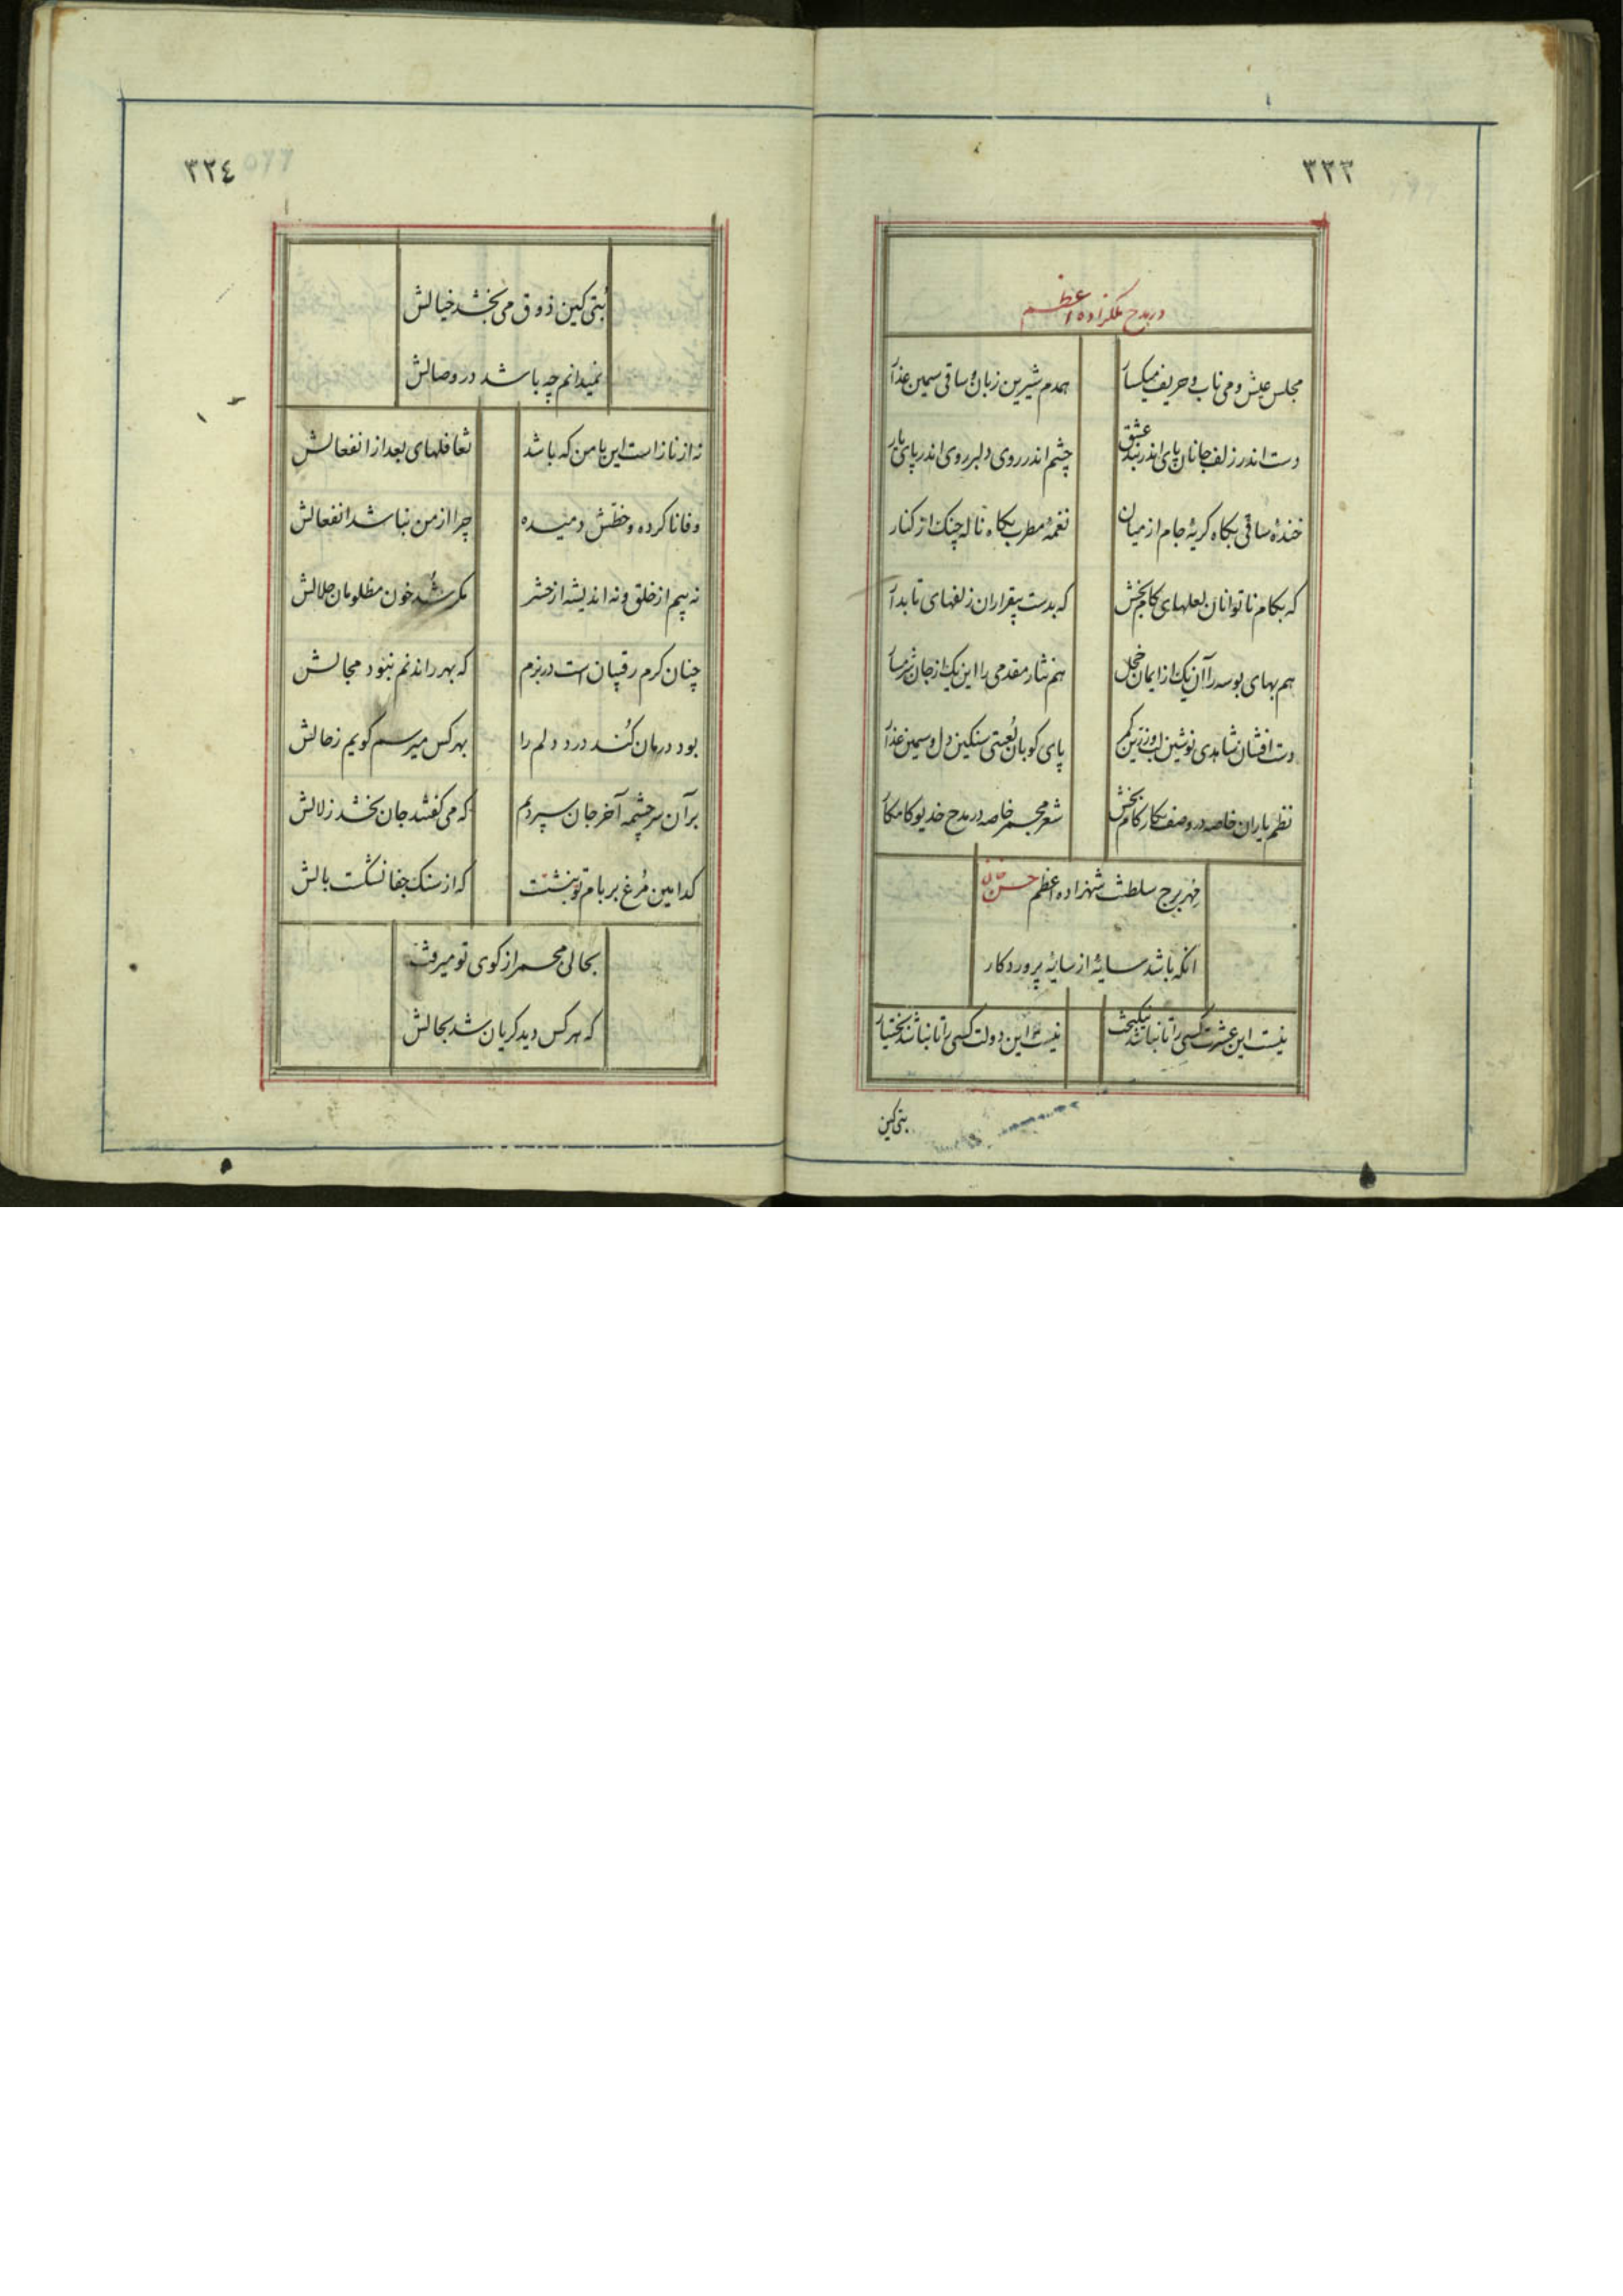 ۳۲۳
در مدح ملکزاده اعظم
مجلس عیش و می ناب و حریف میکسار همدم شیرین زبان و ساقی سیمین عذار
دست اندر زلف جانان پای اندر بند عشق چشم اندر روی دلبر روی اندر پای یار
خندهٔ ساقی بیکاه کریهٔ جام از میان نغمهٔ مطرب بیکاه نالهٔ چنک از کنار
که بکام ناتوانان لعلهای کام بخش که بدست بیقراران زلفهای تابدار
هم بهای بوسه را آن یک از ایمان خجل هم نثار مقدمی را این یک از جان شرمسار
دست افشان شاهدی نوشین لب و زرین کمر پای کوبان لعبتی سنکین دل و سیمین عذار
نظم یاران خاصه در وصف نکار کام بخش شعر مجمر خاصه در مدح خدیو کامکار
مهر برج سلطنت شهزاده اعظم حسن خان
انکه باشد سایهٔ از سایهٔ پروردکار
نیست این عشرت کسی را تا نباشد نیکبخت نیست این دولت کسی را تا نباشد بختیار
بتی کین
۳۲٤
بتی کین ذوق می بخشد خیالش
نمیدانم چه باشد در وصالش
نه از ناز است این با من که باشد تغافلهای بعد از انفعالش
وفا ناکرده و خطش دمیده چرا از من نباشد انفعالش
نه بیم از خلق و نه اندیشه از حشر مکر شد خون مظلومان حلالش
چنان کرم رقیبان است در بزم که بهر راندنم نبود مجالش
بود درمان کند درد دلم را بهر کس میرسم کویم ز حالش
بر آن سرچشمه آخر جان سپردم که می کفتند جان بخشد زلالش
کدامین مرغ بر بام تو بنشست که از سنک جفا نشکست بالش
بحالی مجمر از کوی تو میرفت
که هر کس دید کریان شد بحالش